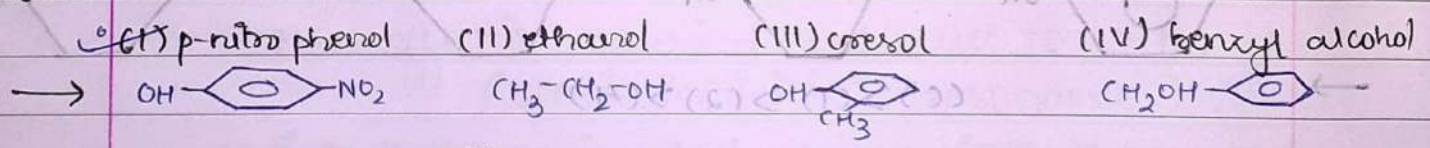 (I) p-nitro phenol (II) ethanol (III) cresol (IV) benzyl alcohol
→ OH- -NO2 CH3-CH2-OH OH- CH3 CH2OH-